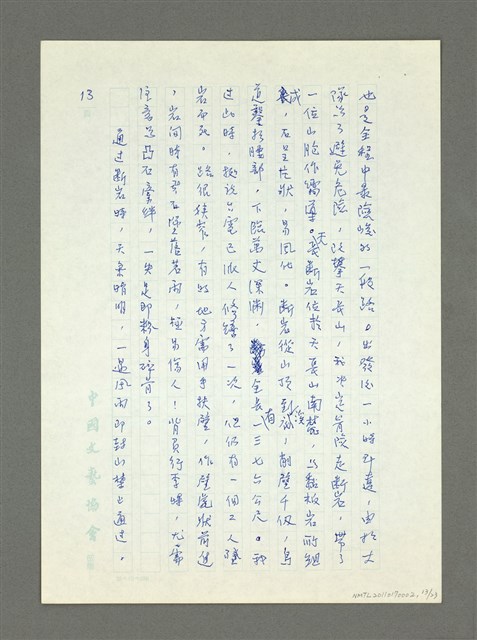 也是全程中最險峻的一段路。出發後一小時到達，由於大
隊為了避免危險，改攀天長山，我決定冒險走斷岩，帶了
一位山胞作嚮導。天長斷岩位於天長山南麓，以黏板岩所組
成，石呈片狀，易風化。斷岩從山頂到溪底，削壁千仞，鳥
道鑿於腰部，下臨萬丈深淵，全長一三七六公尺。我
過此時，據說台電已派人修繕了一次，但仍有一個工人墮
岩而死。路很狹窄，有的地方需用手扶壁，作壁虎狀前進
，岩間時有碎石墜落若雨，極易傷人！背負行李時，尤需
注意這凸石牽絆，一失足即粉身碎骨了。
通過斷岩時，天氣晴朗，一遇風雨即封山禁止通過。
13
中國文藝協會
NMTL20110170002, 13/23